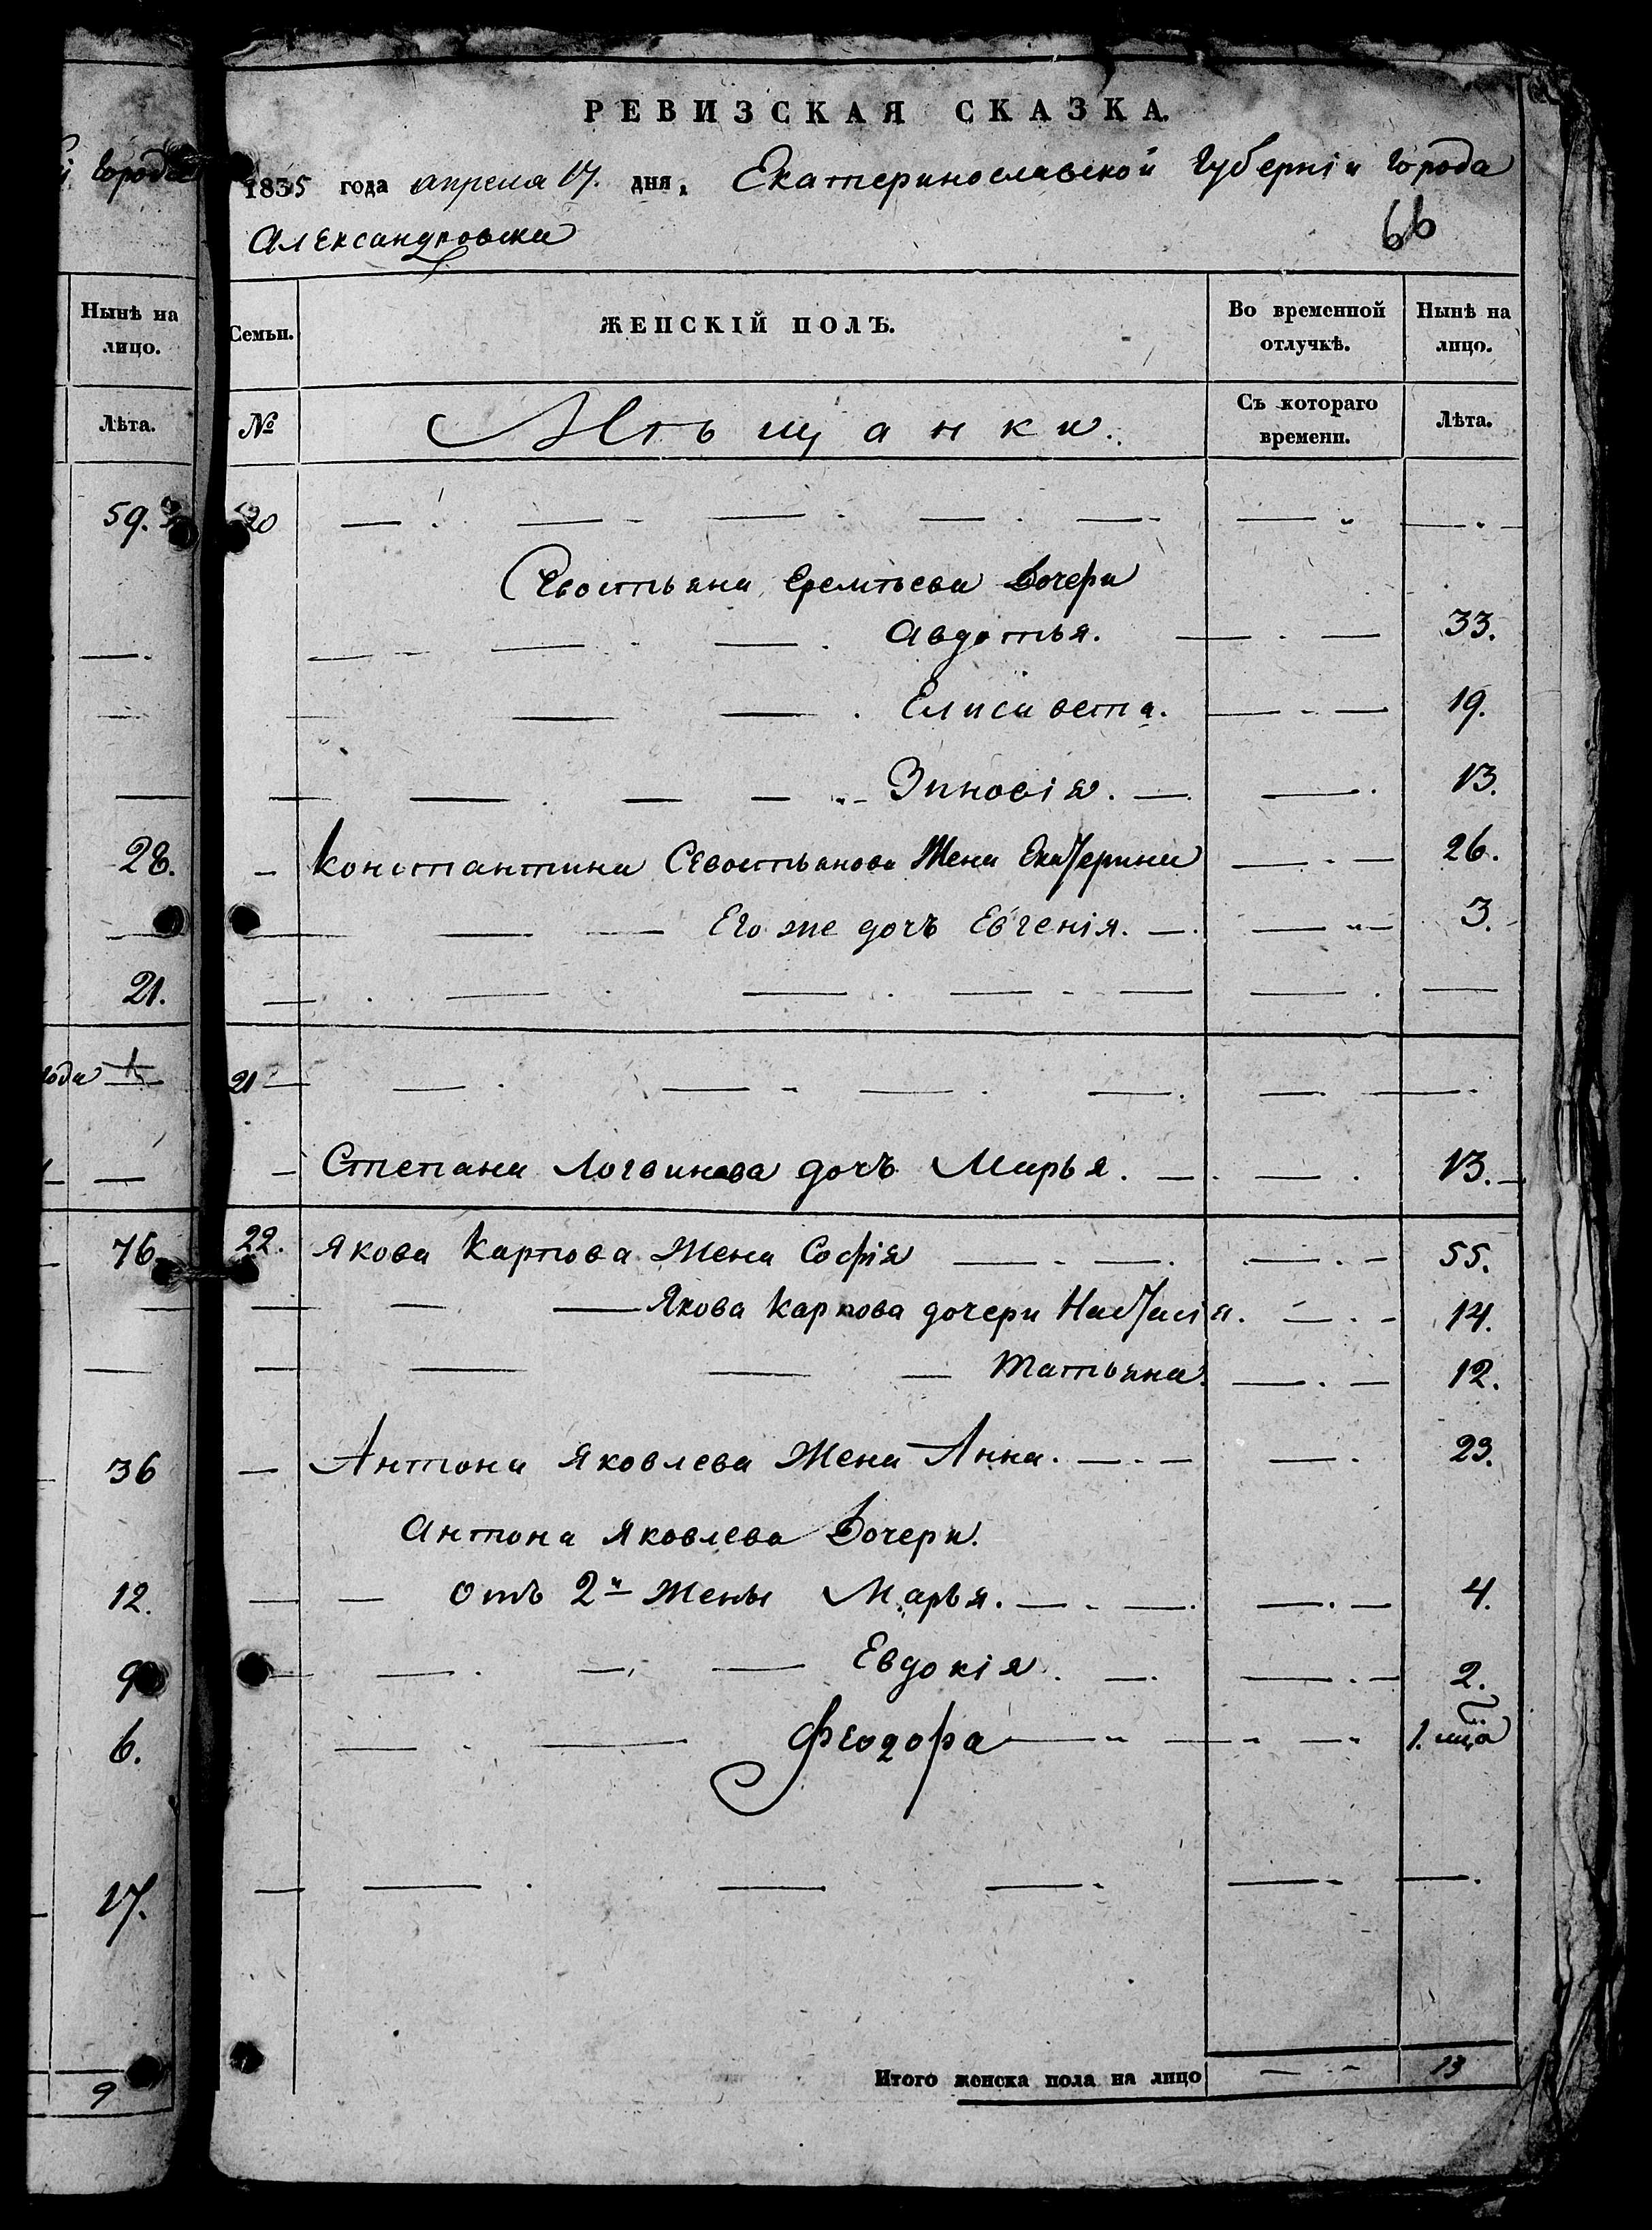 РЕВИЗСКАЯ СКАЗКА.
1835 года апреля 17. дня, Екатеринославской Губерніи Города
Александровска
66
Города
Нынѣ на лицо.
Лѣта.
59.
28.
21.
года
76
36
12.
9
6.
17.
9
Семьи.
ЖЕНСКІЙ ПОЛЪ.
Во временной отлучкѣ.
Нынѣ на лицо.
№
Мѣщанки.
Съ котораго времени.
Лѣта.
20
Севостьяна Еремѣева Дочери
Авдотья. 33.
Елисавета. 19.
Зиновія. 13.
Константина Севостьянова Жена Екатерина 26.
Его же дочь Евгенія. 3.
21
Степана Логвинова дочь Марья. 13.
22. Якова Карпова Жена Софія 55.
Якова Карпова дочери Настасія. 14.
Татьяна. 12.
Антона Яковлева Жена Анна. 23.
Антона Яковлева Дочери.
Отъ 2й Жены Марья. 4.
Евдокія. 2.
Феодора 1.
Итого женска пола на лицо 13